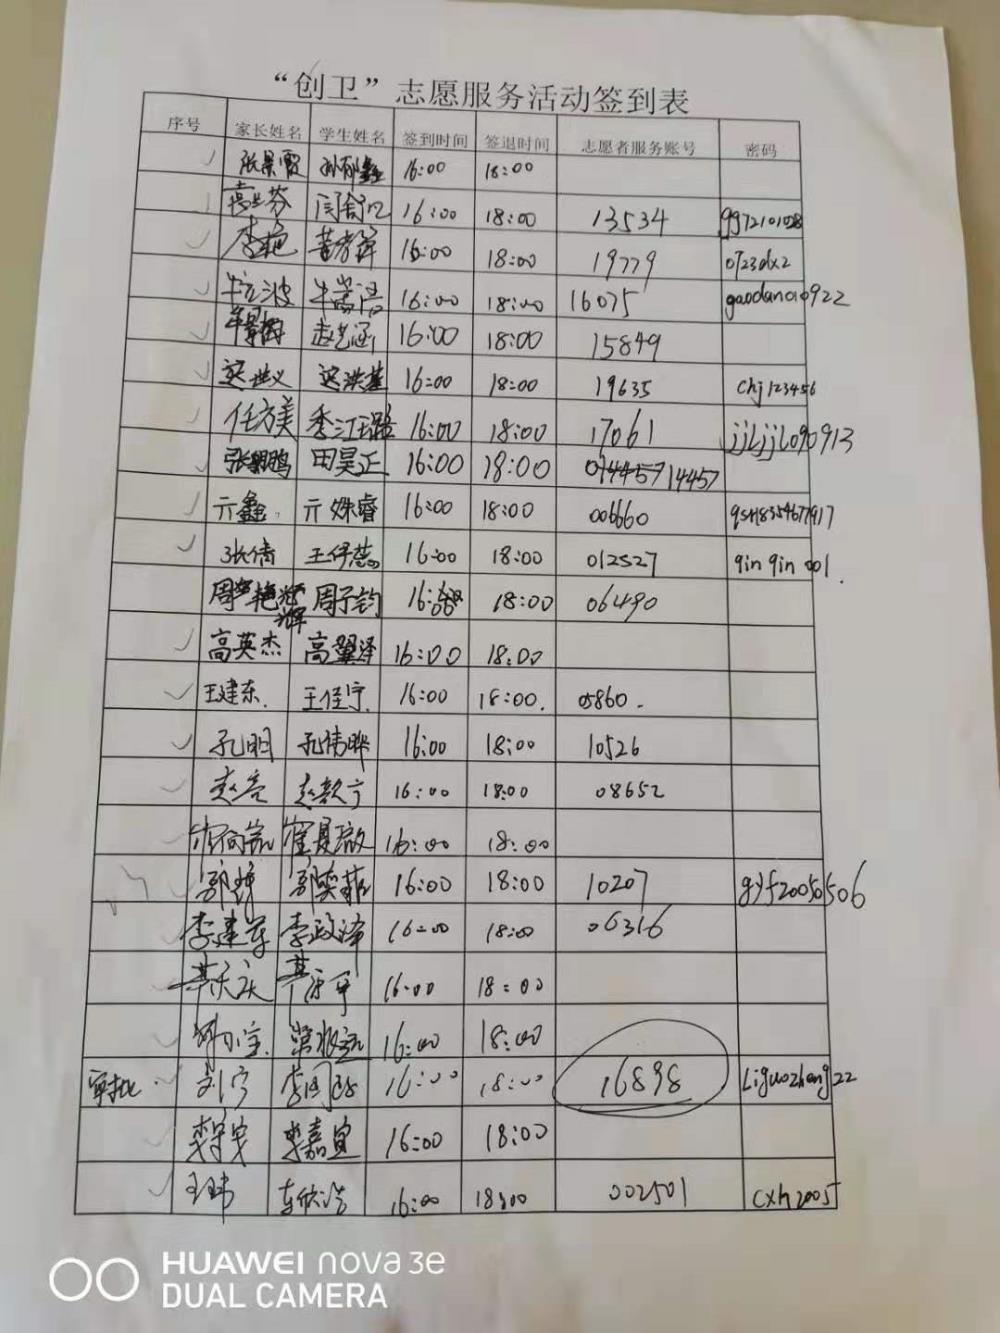 “创卫”志愿服务活动签到表
序号 家长姓名 学生姓名 签到时间 签退时间 志愿者服务账号 密码
张景霞 16:00 18:00
16:00 18:00 13534
李艳 16:00 18:00 19779 0723dx2
牛立波 16:00 18:00 16075 gaodanao922
赵艺涵 16:00 18:00 15849
16:00 18:00 19635 chj123456
任方美 季江璐 16:00 18:00 17061 jjLjjL090913
张鹏 田昊正 16:00 18:00 14457
亓鑫 亓姝睿 16:00 18:00 006660
张倩 王伊蕊 16:00 18:00 012527 qinqin001.
周艳辉 周子钧 16:00 18:00 06490
高英杰 高翼泽 16:00 18:00
王建东. 王佳宁. 16:00 18:00. 05860.
孔明 孔伟晔 16:00 18:00 10526
赵亮 赵歆宁 16:00 18:00 08652
16:00 18:00
郭 郭奕菲 16:00 18:00 10207 gyf20050506
李建军 李政泽 16:00 18:00 06316
16:00 18:00
16:00 18:00
审批 刘宁 16:00 18:00 16898 Liguozheng22
李嘉宜 16:00 18:00
王玮 车欣浩 16:00 18:00 002501 cxh2005
HUAWEI nova 3e
DUAL CAMERA